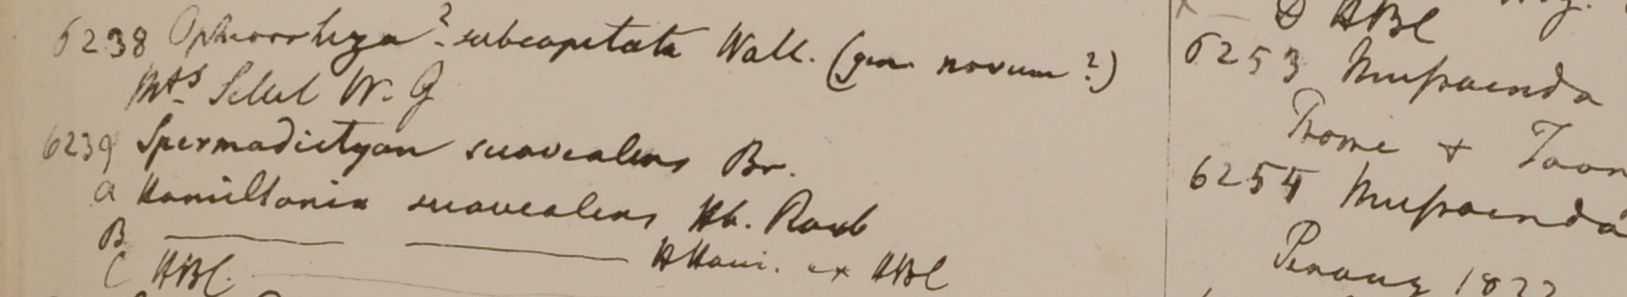 6238 Ophiorrhiza? subcapitata Wall. (gen novum?)
Mts Silhet W. G
6239 Spermadictyon suaveolens Br.
a Hamiltonia suaveolens Hb. Roxb
B ——— ——— HHam. ex HBC
C HBC.
D HBC
6253 Mussaenda
Prome + Taon
6254 Mussaenda
Penang 1822